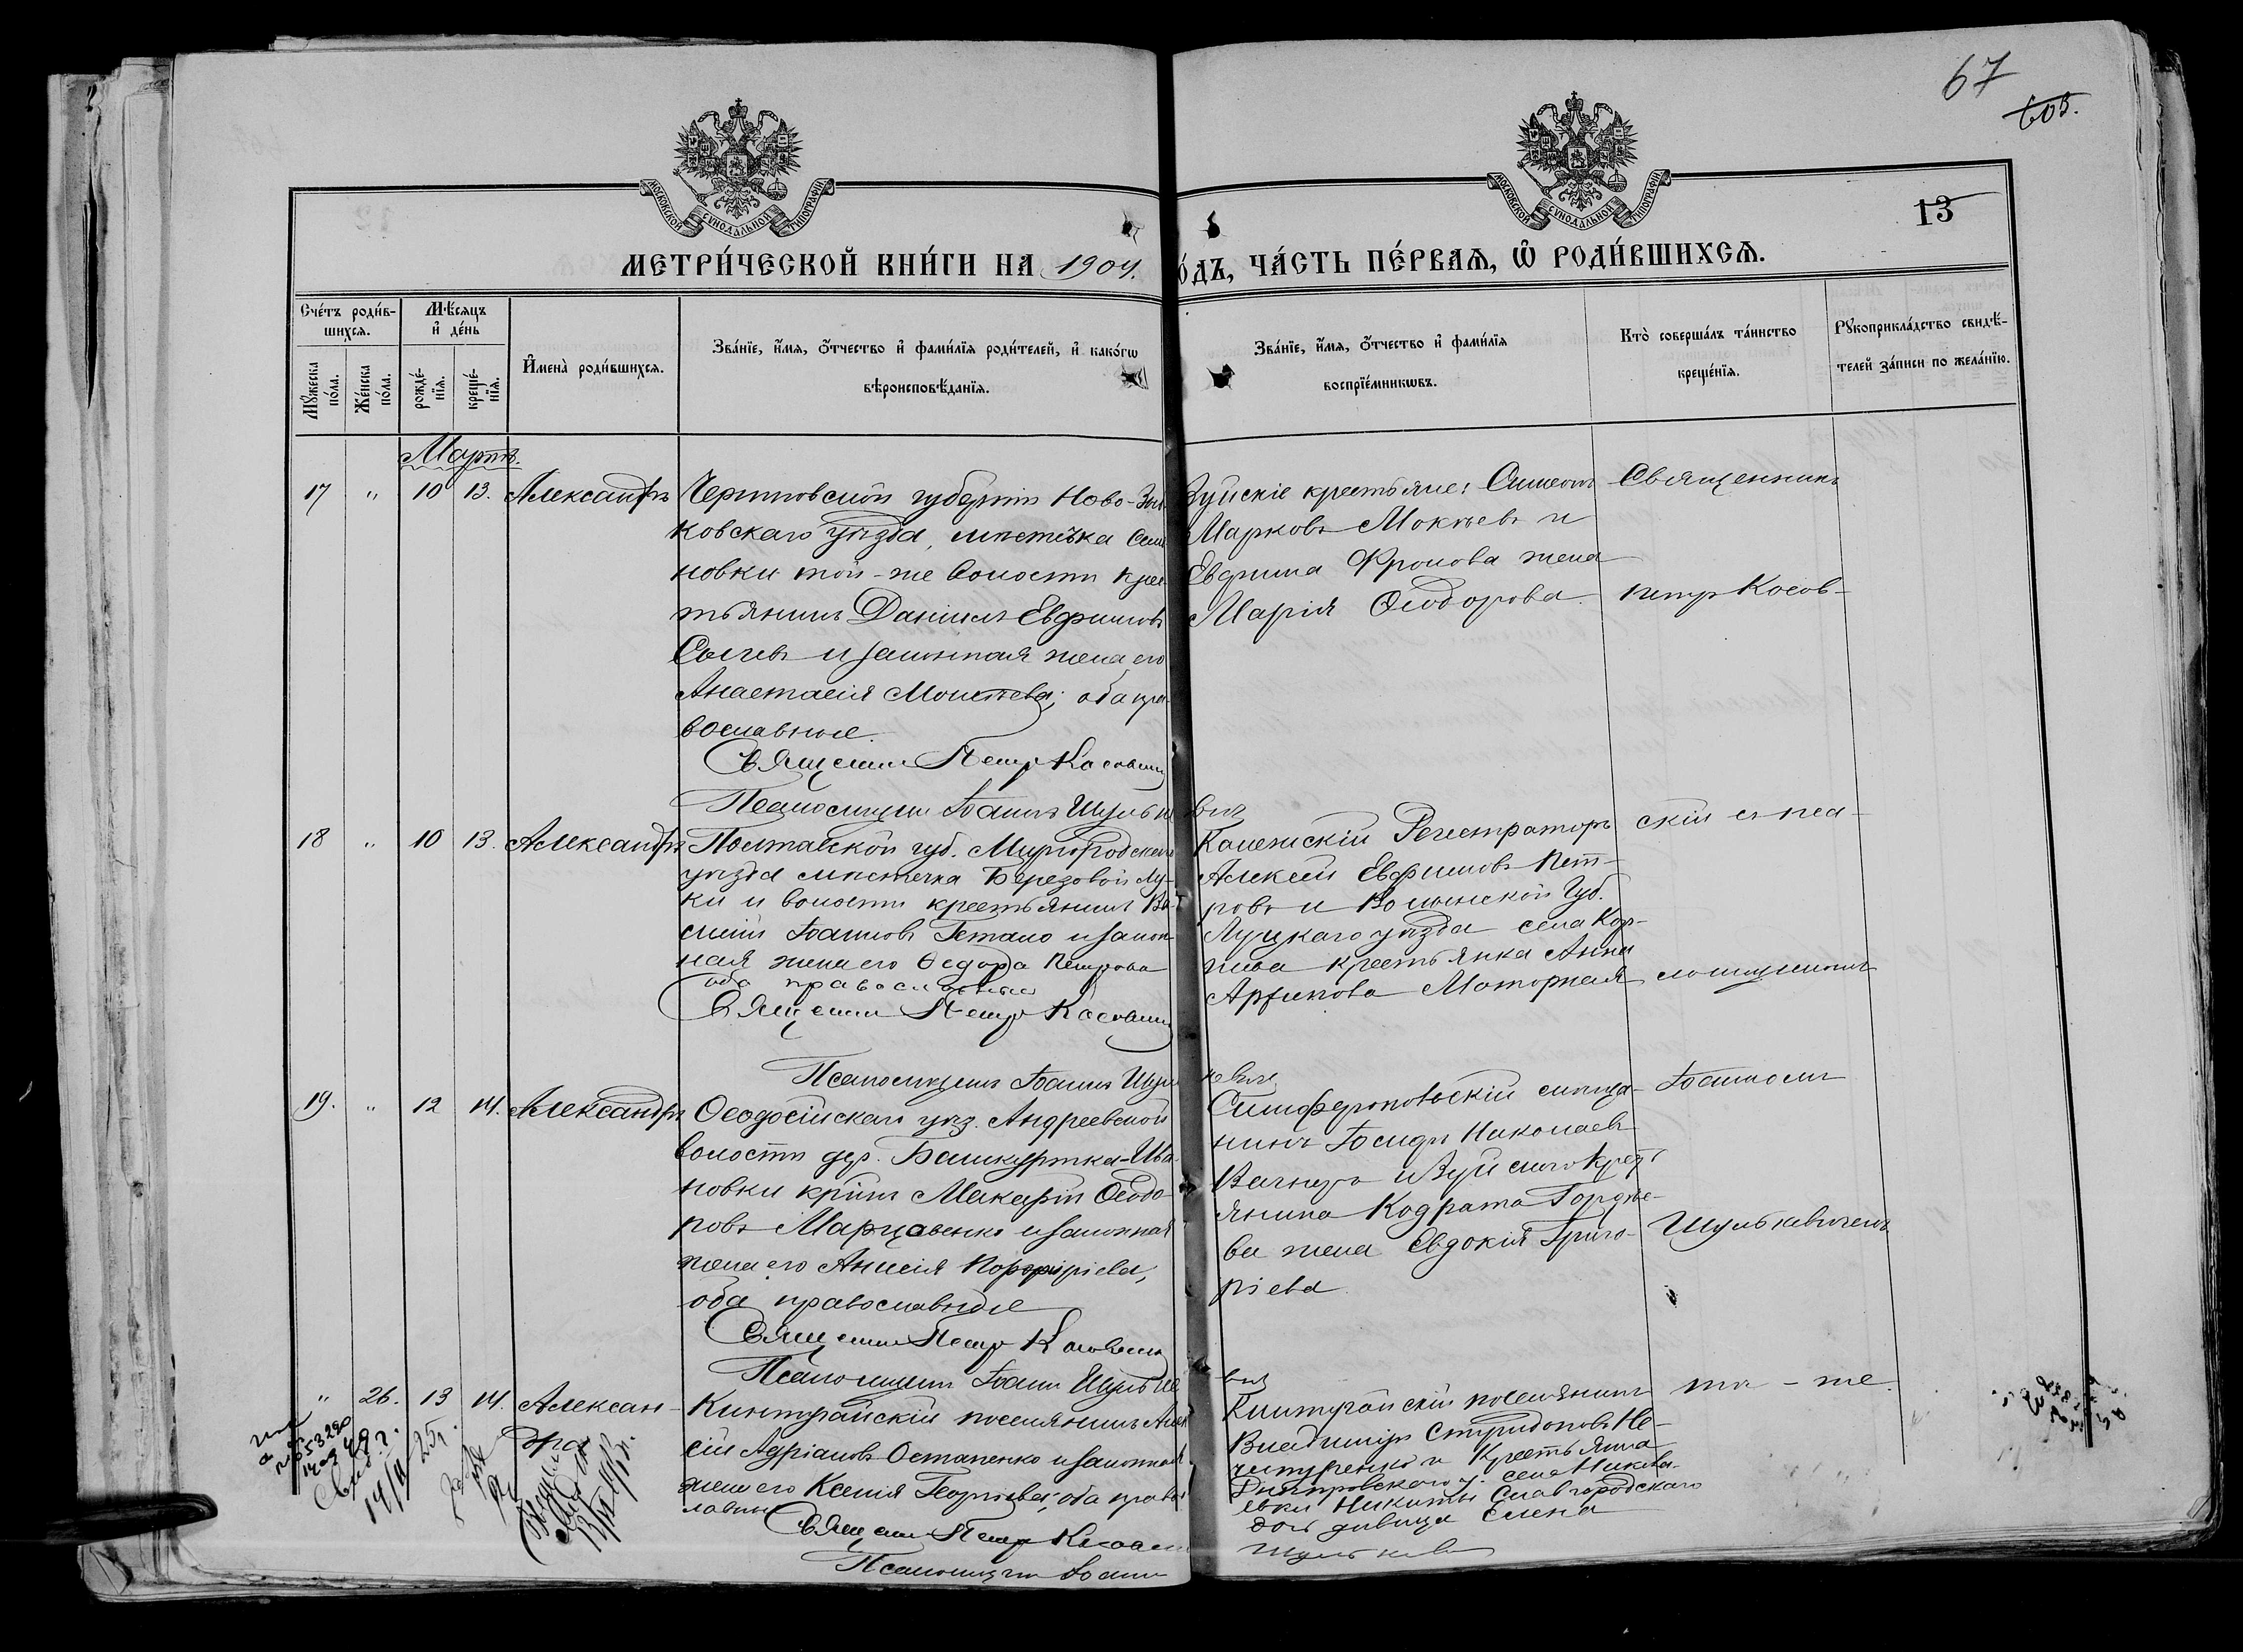 67
605.
МОСКОВСКОЙ СУНОДАЛЬНОЙ ТИПОГРАФІИ
МОСКОВСКОЙ СУНОДАЛЬНОЙ ТИПОГРАФІИ
13
МЕТРИ́ЧЕСКОЙ КНИ́ГИ НА 1904.
О́ДЪ, ЧА́СТЬ ПЕ́РВАЯ, Ѡ҆ РОДИ́ВШИХСЯ.
Сче́тъ роди́в-
шихся.
Мѣ́сяцъ
и҆ де́нь
Мꙋ́жеска по́ла.
Же́нска по́ла.
рожде́-
нїя.
креще́-
нїя.
И҆мена̀ роди́вшихся.
Зва́нїе, и҆́мя, о҆́тчество и҆ фами́лїя роди́телей, и҆ како́гѡ
вѣроисповѣ́данїя.
Зва́нїе, и҆́мя, о҆́тчество и҆ фами́лїя
воспрїе́мникѡвъ.
Кто̀ соверша́лъ та́инство
креще́нїя.
Рꙋкоприкла́дство свидѣ́-
телей за́писи по жела́нїю.
Мартъ.
17 " 10 13. Александръ
Черниговской губерніи Ново-Зыб
ковскаго уѣзда, мѣстечка Семе
новки той-же волости крес
тьянинъ Даніилъ Евфимовъ
и законная жена его
Анастасія Моисеева; оба пра-
вославные.
Священник Петр Косовский
Псаломщик Іоаннъ Шульке
вич
Зуйскіе крестьяне: Симеонъ
Марковъ Мокѣевъ и
Евфима Фролова жена
Марія Ѳеодорова.
Священникъ
петръ Косов-
18 " 10 13. Александръ
Полтавской губ. Миргородскаго
уѣзда мѣстечка Березовой Лу-
ки и волости крестьянинъ Ва-
силій Іоанновъ Гетало и закон-
ная жена его Ѳедора Петрова
оба православные
Священник Петр Косовский
Псаломщикъ Іоаннъ Шуль
кевич
Колежскій Регистраторъ
Алексѣй Евфимовъ Пет-
ровъ и Волынской Губ.
Луцкаго уѣзда села Кор-
крестьянка Анна
Моторная
скій съ пса-
ломщикомъ
19. " 12 14. Александръ
Ѳеодосійскаго уѣз. Андреевской
волости дер. Башкуртка-Ива-
новки Макарій Ѳеодо-
ровъ Марцовенко и законная
жена его Анисія Порфиріева,
оба православные
Священник Петр Косовский
Псаломщикъ Іоанн Шульке
вич
Симферопольскій мѣща-
нинъ Іосифъ Николаевъ
Вагнеръ и Зуйскаго Крест
янина Кодрата Гордѣе-
ва жена Евдокія Григо-
ріева
Іоанномъ
Шулькевичемъ
" 26. 13 14. Алексан-
дра
Кинтугайскій поселянинъ Алек
сій Адріановъ Остапенко и законная
жена его Ксенія Георгіева; оба право
славны
Священ Петр Косовский
Псаломщикъ Іоанн
Кинтугайскій поселянинъ
Владиміръ Спиридоновъ Не-
чипуренко и Крестьянина
Днѣпровскаго у. села Никола-
евки Никиты Славгородскаго
дочь дѣвица Елена
Шулькеви
тѣ-же.